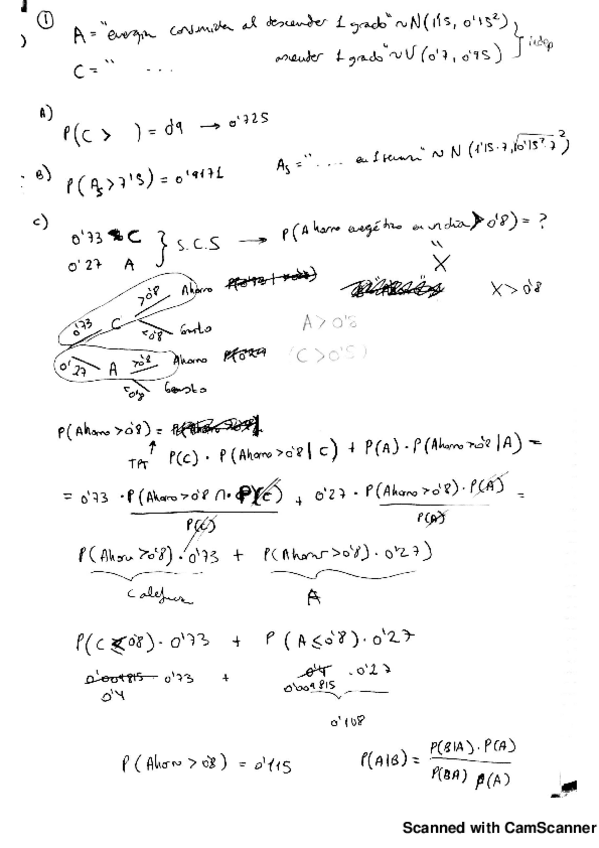 ①
A = "energía consumida al descender 1 grado" ~ N(1'15, 0'15²)
C = " ... ascender 1 grado" ~ U(0'7, 0'95) } indep
A)
P(C > ) = → 0'725
As = " ... en 1 semana" ~ N(1'15·7, √0'15²·7 ²)
B) P(As > 7'5) = 0'9171
C)
0'73 C
0'27 A } S.C.S → P(Ahorro energético en un día > 0'8) = ?
" X
X > 0'8
0'73 C >0'8 Ahorro
<0'8 Gasto
A > 0'8
0'27 A >0'8 Ahorro
(C > 0'5)
<0'8 Gasto
P(Ahorro > 0'8) =
TPT P(C) · P(Ahorro > 0'8 | C) + P(A) · P(Ahorro > 0'8 | A) =
= 0'73 · P(Ahorro > 0'8 ∩ P(C) / P(C) + 0'27 · P(Ahorro > 0'8) · P(A) / P(A) =
P(Ahorro > 0'8) · 0'73 + P(Ahorro > 0'8) · 0'27)
A
P(C ≤ 0'8) · 0'73 + P(A ≤ 0'8) · 0'27
0'009815 0'73 + 0'4 · 0'27
0'4 0'009815
0'108
P(Ahorro > 0'8) = 0'115 P(A|B) = P(B|A) · P(A) / P(BA) P(A)
Scanned with CamScanner